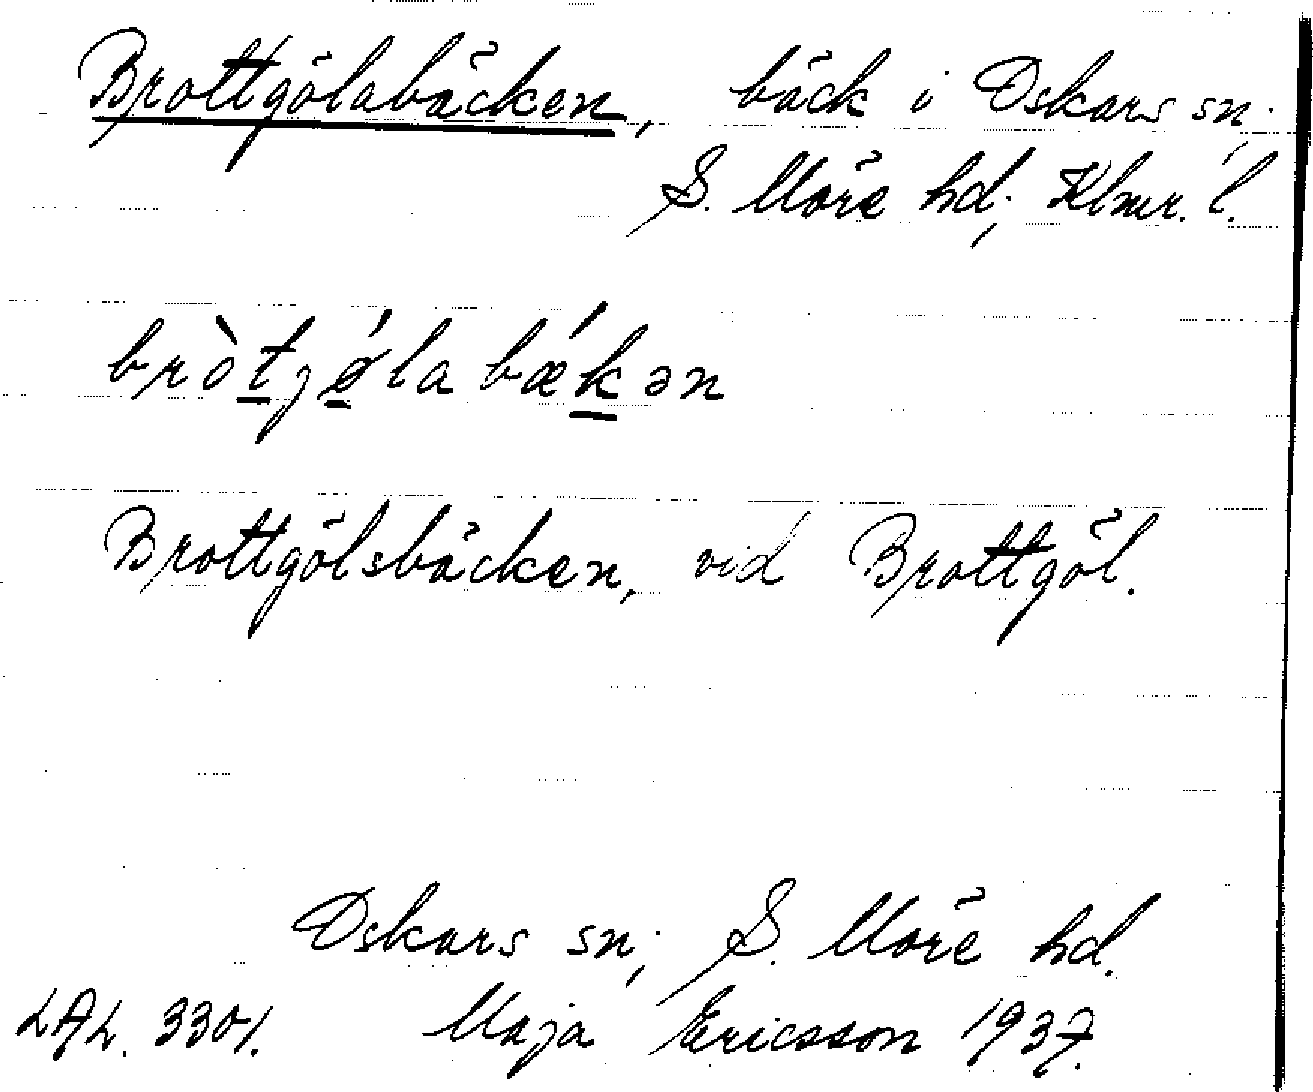 Brottgölabäcken, bäck i Oskars sn,
S. Möre hd, Klmr. l.
bròtjǿla bǽkən
Brottgölsbäcken, vid Brottgöl.
Oskars sn, S. Möre hd.
LAL. 3301. Maja Ericsson 1937.